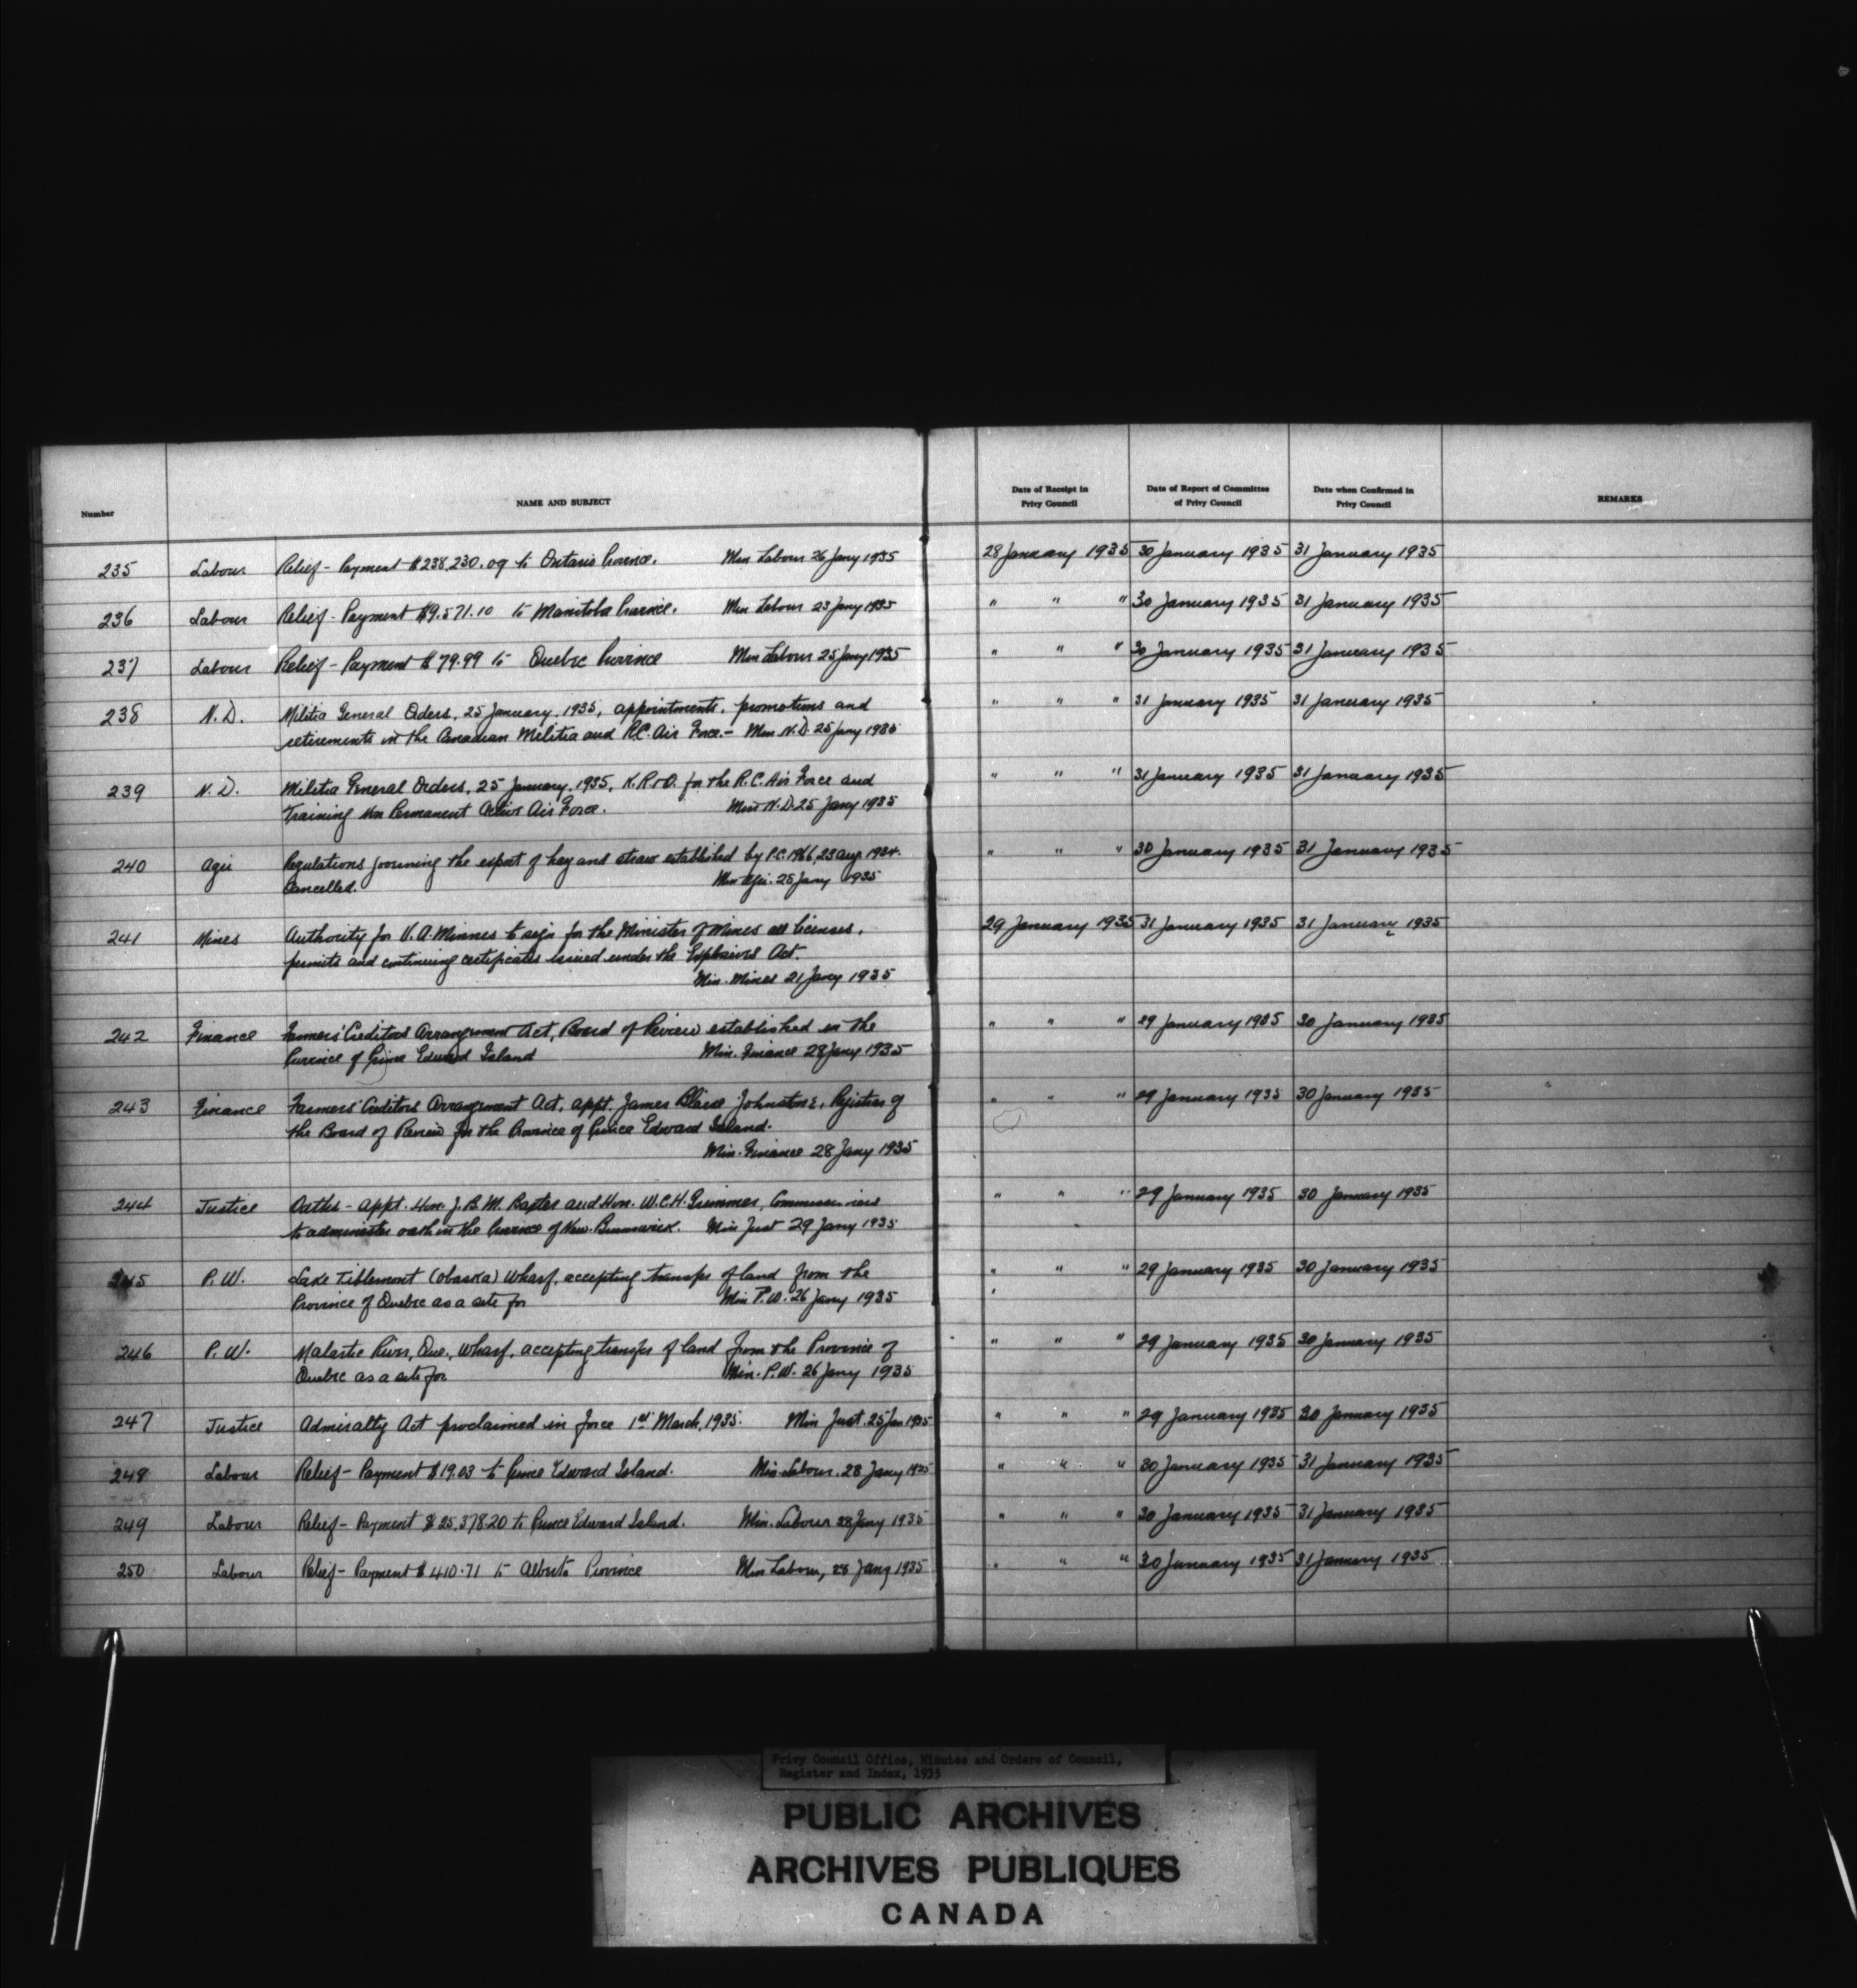 Number
NAME AND SUBJECT
Date of Receipt in
Privy Council
Date of Report of Committee
of Privy Council
Date when Confirmed in
Privy Council
REMARKS
235 Labour Relief - Payment $238,230.09 to Ontario Province. Min Labour 26 Jany 1935 28 January 1935 30 January 1935 31 January 1935
236 Labour Relief - Payment $9,571.10 to Manitoba Province. Min Labour 23 Jany 1935 " " " 30 January 1935 31 January 1935
237 Labour Relief - Payment $79.99 to Quebec Province Min Labour 25 Jany 1935 " " " 30 January 1935 31 January 1935
238 N.D. Militia General Orders, 25 January, 1935, appointments, promotions and " " " 31 January 1935 31 January 1935
retirements in the Canadian Militia and R.C. Air Force. - Min N.D. 25 Jany 1935
239 N.D. Militia General Orders, 25 January, 1935, K.R.&O. for the R.C. Air Force and " " " 31 January 1935 31 January 1935
Training Non Permanent Active Air Force. Min N.D. 25 Jany 1935
240 Agri Regulations governing the export of hay and straw established by P.C. 1966, 23 Aug 1934. " " " 30 January 1935 31 January 1935
Cancelled. Min Agri. 25 Jany 1935
241 Mines Authority for to sign for the Minister of Mines all licenses, 29 January 1935 31 January 1935 31 January 1935
permits and continuing certificates issued under the Explosives Act.
Min. Mines 21 Jany 1935
242 Finance Farmers' Creditors Arrangement Act, Board of Review established in the " " " 29 January 1935 30 January 1935
Province of Prince Edward Island Min. Finance 28 Jany 1935
243 Finance Farmers' Creditors Arrangement Act, appt. James Johnstone, Registrar of " " " 29 January 1935 30 January 1935
the Board of Review for the Province of Prince Edward Island.
Min. Finance 28 Jany 1935
244 Justice Oaths - appt. Hon. J.B.M. Baxter and Hon. W.C.H. Grimmer, Commissioners " " " 29 January 1935 30 January 1935
to administer oath in the Province of New Brunswick. Min Just 29 Jany 1935
245 P.W. Lake Tiblemont (Obaska) Wharf, accepting transfer of land from the " " " 29 January 1935 30 January 1935
Province of Quebec as a site for Min P.W. 26 Jany 1935
246 P.W. Malartic River, Que., Wharf, accepting transfer of land from the Province of " " " 29 January 1935 30 January 1935
Quebec as a site for Min. P.W. 26 Jany 1935
247 Justice Admiralty Act proclaimed in force 1st March, 1935. Min Just. 25 Jan 1935 " " " 29 January 1935 30 January 1935
248 Labour Relief - Payment $19.03 to Prince Edward Island. Min. Labour. 28 Jany 1935 " " " 30 January 1935 31 January 1935
249 Labour Relief - Payment $25,378.20 to Prince Edward Island. Min. Labour 28 Jany 1935 " " " 30 January 1935 31 January 1935
250 Labour Relief - Payment $410.71 to Alberta Province Min Labour, 28 Jany 1935 " " " 30 January 1935 31 January 1935
Privy Council Office, Minutes and Orders of Council,
Register and Index, 1935
PUBLIC ARCHIVES
ARCHIVES PUBLIQUES
CANADA